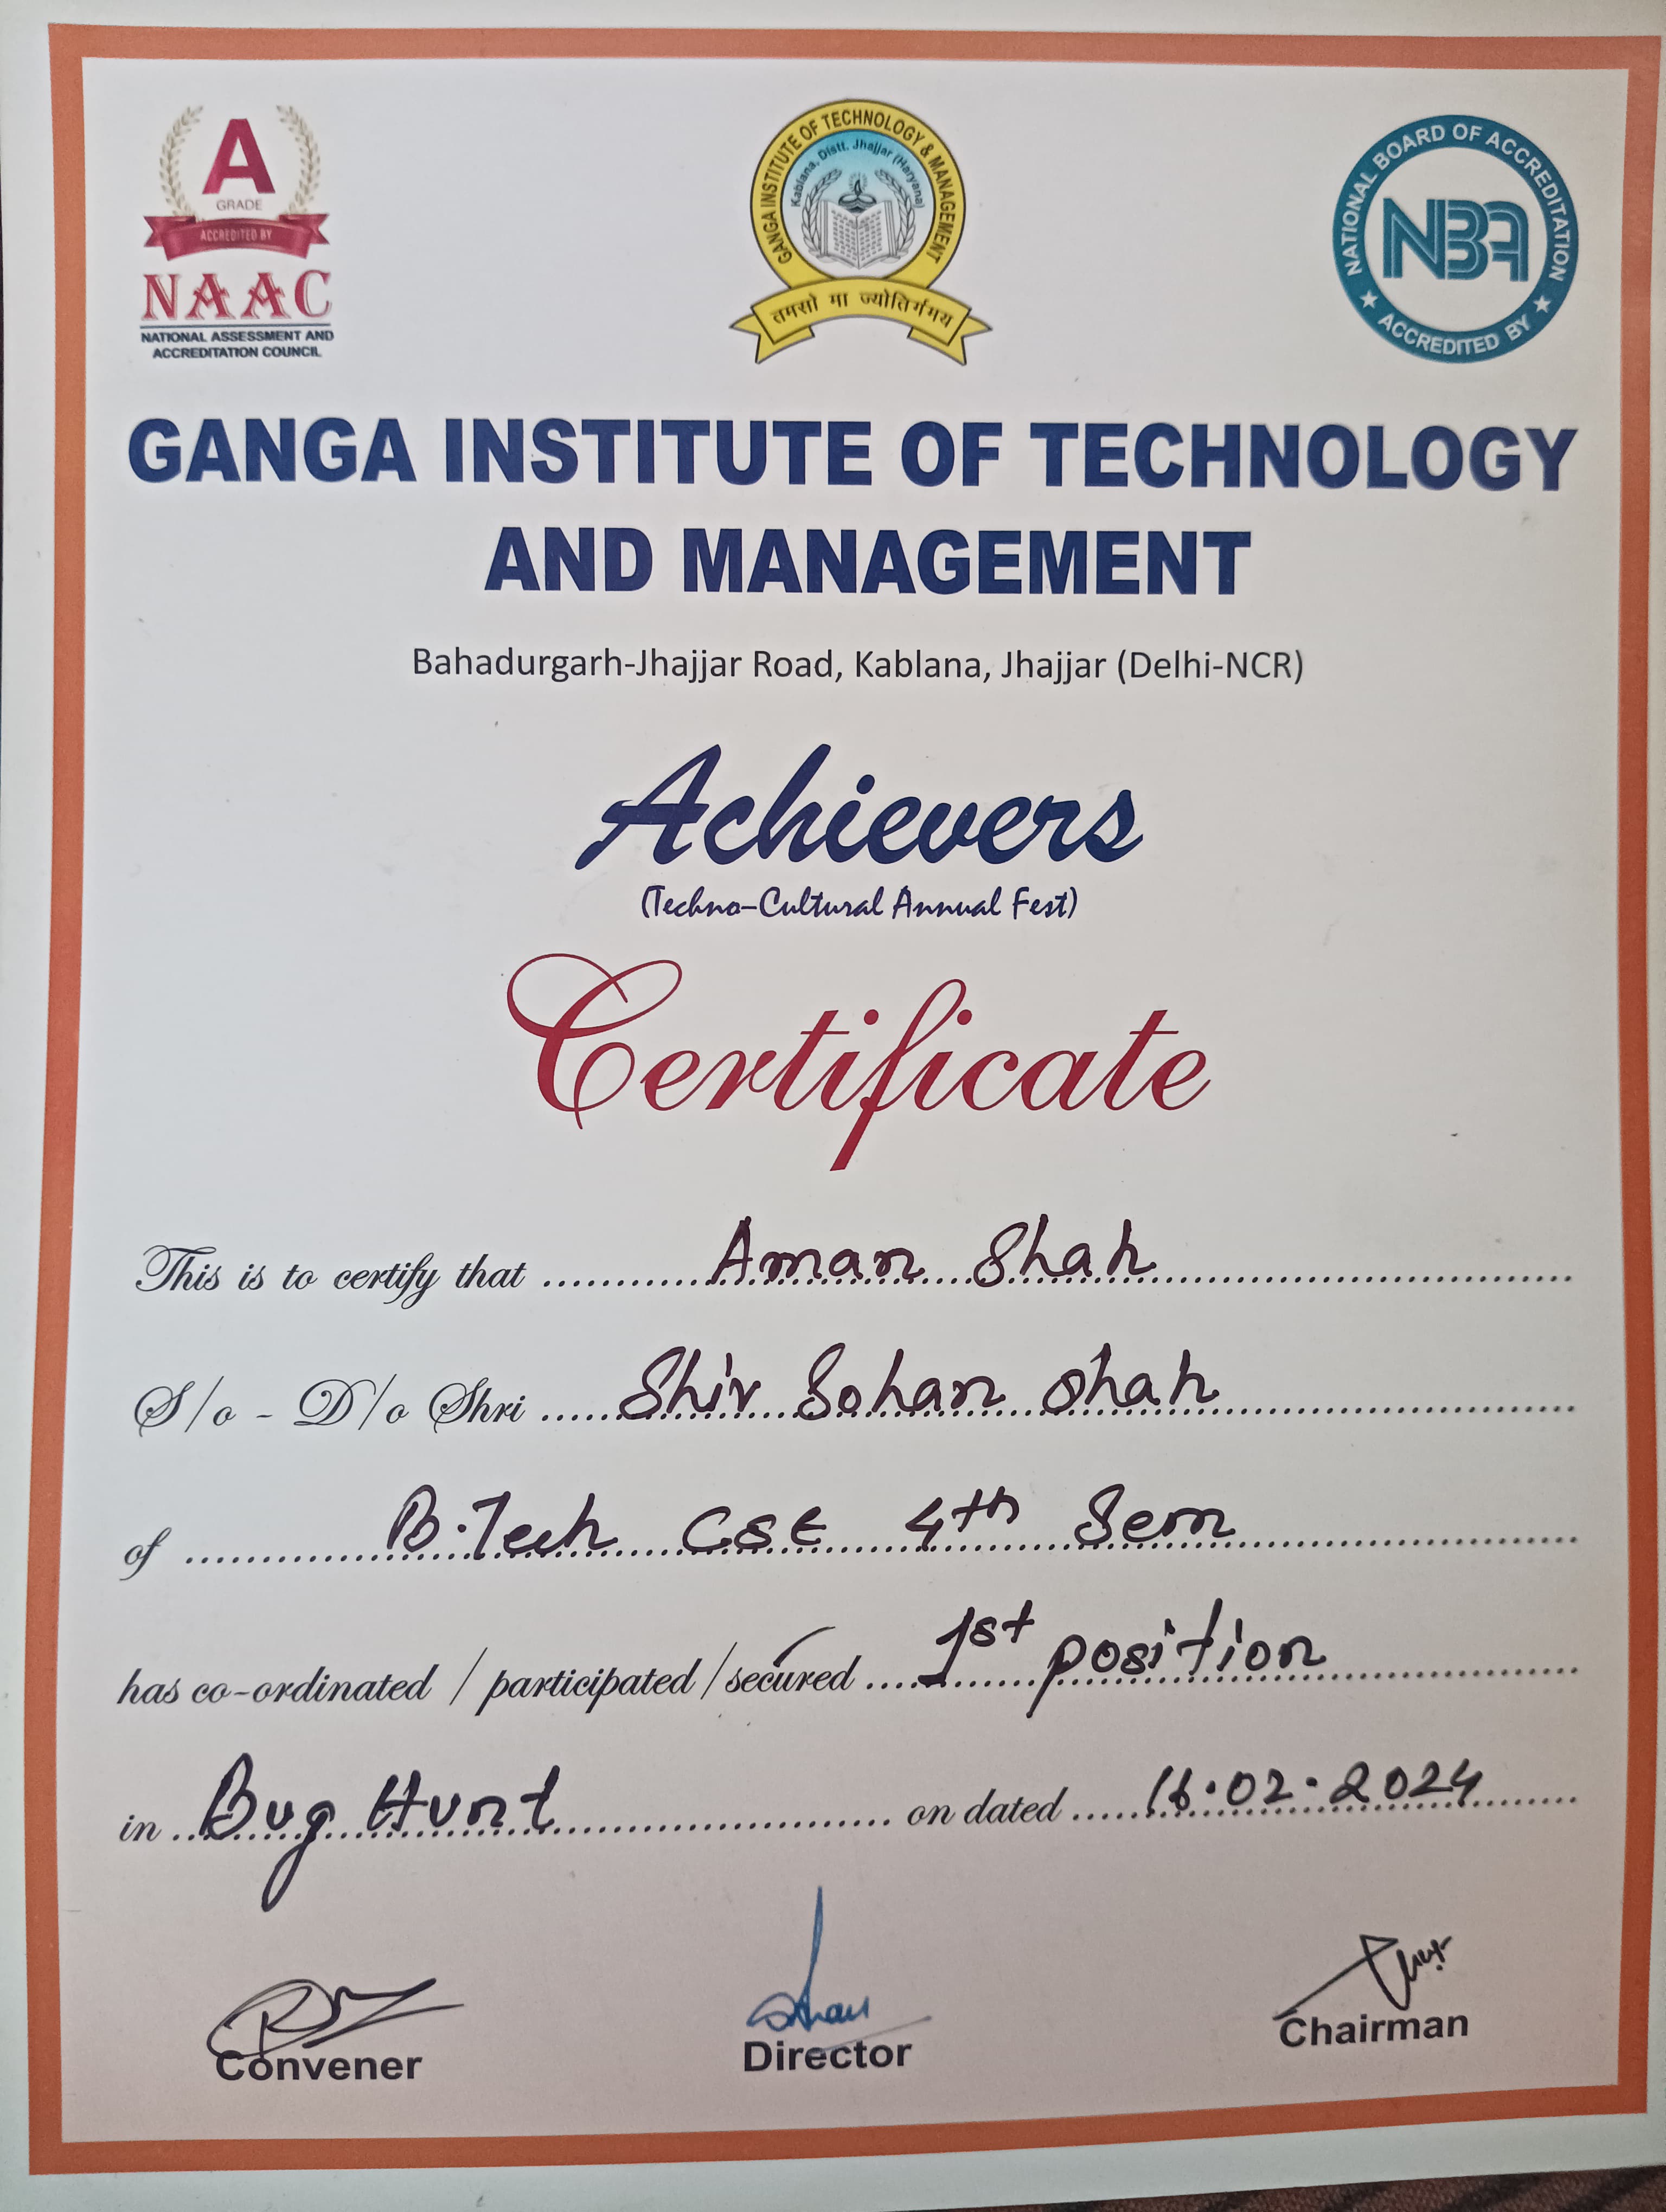 A
GRADE
ACCREDITED BY
NAAC
NATIONAL ASSESSMENT AND
ACCREDITATION COUNCIL
GANGA INSTITUTE OF TECHNOLOGY & MANAGEMENT
Kablana, Distt. Jhajjar (Haryana)
तमसो मा ज्योतिर्गमय
NATIONAL BOARD OF ACCREDITATION
NBA
★ ACCREDITED BY ★
GANGA INSTITUTE OF TECHNOLOGY
AND MANAGEMENT
Bahadurgarh-Jhajjar Road, Kablana, Jhajjar (Delhi-NCR)
Achievers
(Techno-Cultural Annual Fest)
Certificate
This is to certify that Aman Shah
S/o - D/o Shri Shiv Sohan Shah
of B.Tech CSE 4th Sem
has co-ordinated / participated / secured 1st position
in Bug Hunt on dated 16.02.2024
Convener
Director
Chairman